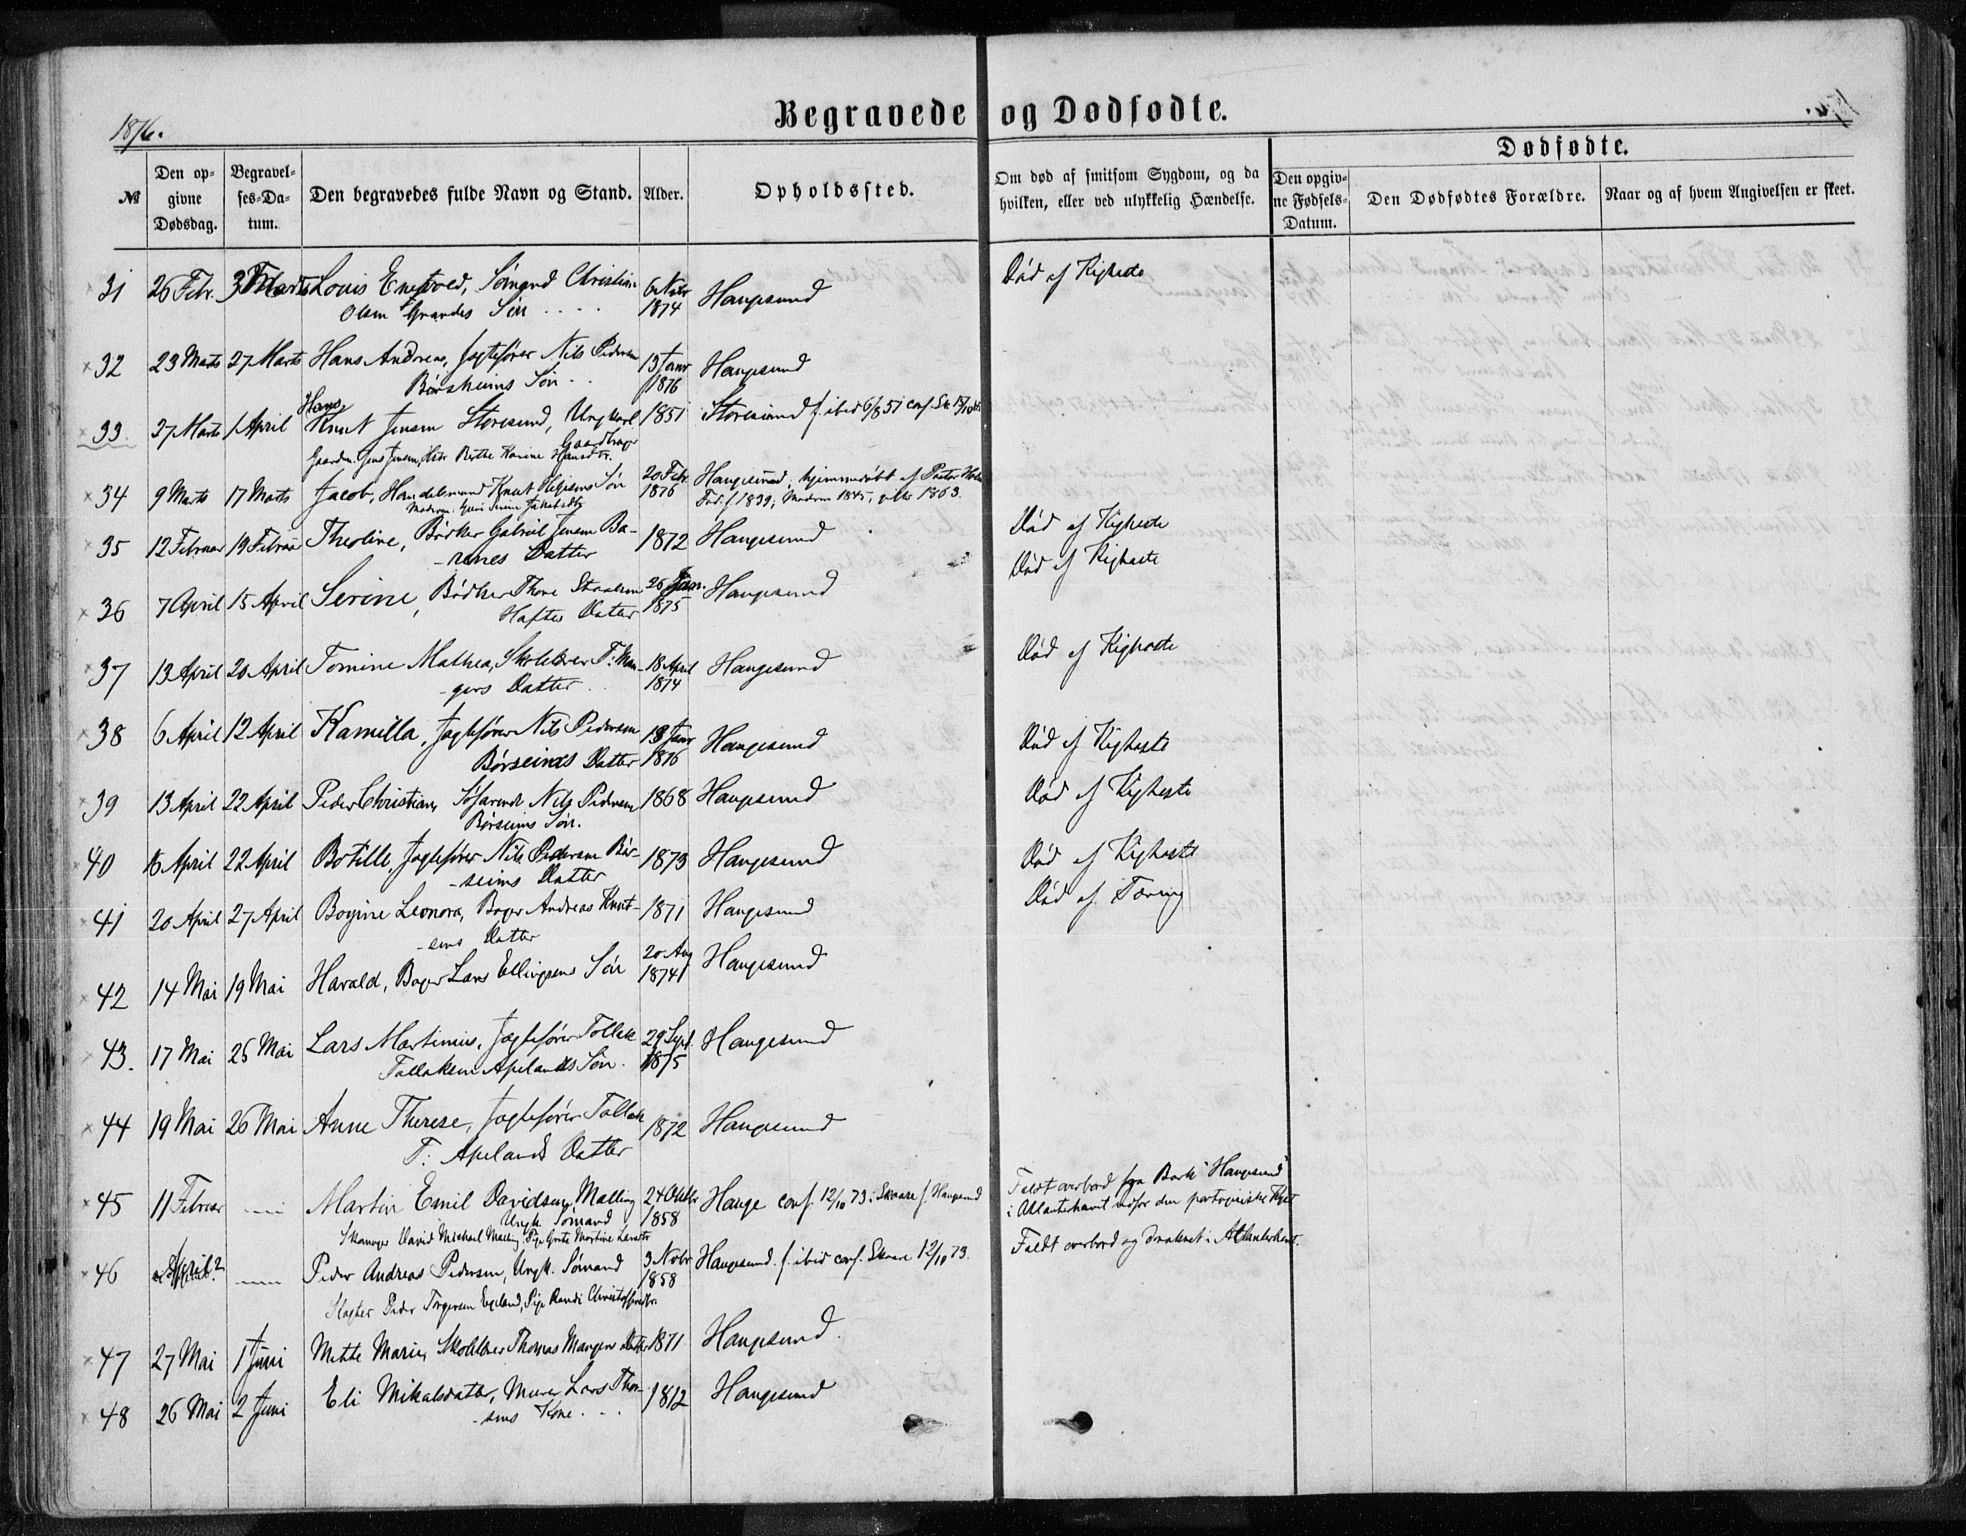 1876.
Begravede og Dødfødte.
№
Den opgivne Dødsdag.
Begravelses-Datum.
Den begravedes fulde Navn og Stand.
Alder.
Opholdssted.
Om død af smitsom Sygdom, og da hvilken, eller ved ulykkelig Hændelse.
Dødfødte.
Den opgivne Fødsels-Datum.
Den Dødfødtes Forældre.
Naar og af hvem Angivelsen er skeet.
31 26 Febr. 3 Marts Louis Enevold, Sømand Christian 6 Novbr Haugesund Død af Kighoste
Olsen Grandes Søn . . . . 1874
32 23 Marts 27 Marts Hans Andreas, Jagtefører Nils Pedersen 13 Januar Haugesund
Børsheims Søn . . 1876
Hans
33. 27 Marts 1 April Knut Jensen Storesund, Ungkarl 1851 Storesund f. ibid 6/8 51 conf. Sk.
Gaardbruger
Gaardm. Jens Jensen, Hstr Berthe Karine Hansdtr.
34 9 Marts 17 Marts Jacob, Handelsmand Knut Søn 20 Febr. Haugesund, hjemmedøbt af Pastor
1876 Fad. f. 1839, Modren 1845, gvtr 1863.
35 12 Februar 19 Februar Theoline, Bødker Gabriel Jensen Ba- 1872 Haugesund Død af Kighoste
-nenes Datter
36 7 April 15 April Serine, Bødker Thore Staalesen 26 Jan. Haugesund Død af Kighoste
Haftes Datter 1875
37 13 April 20 April Tomine Mathea, Skolelærer T. Man- 18 April Haugesund Død af Kighoste
-gers Datter . . 1874
38 6 April 12 April Kamilla, Jagtefører Nils Pedersen 13 Januar Haugesund Død af Kighoste
Børseims Datter 1876
39 13 April 22 April Peder Christian, Søfarende Nils Pedersen 1868 Haugesund Død af Kighoste
Børseims Søn.
40 16 April 22 April Botille, Jagtefører Nils Pedersen Bør- 1873 Haugesund Død af Kighoste
-seims Datter
41 20 April 27 April Bogine Leonora, Bager Andreas Knut- 1871 Haugesund Død af Tæring
-sens Datter
42 14 Mai 19 Mai Harald, Bager Lars Ellingsens Søn 20 Aug 1874 Haugesund
43. 17 Mai 25 Mai Lars Martinius, Jagtefører Tollak 29 Sept. Haugesund
Tollaksen Apelands Søn. 1875
44 19 Mai 26 Mai Anne Therese, Jagtefører Tollak 1872 Haugesund
T. Apelands Datter
45 11 Februar — Martin Emil Davidsen Malling 24 Oktbr Hauge conf. 12/10 73 i Skaare f. Haugesund Faldt overbord fra Bark "Haugesund"
Ungk. Sømand 1858 i Atlanterhavet udfor den portugisiske Kyst
Skomager David Michael Malling, Pige Grete Martine Larsdtr
46 April? — Peder Andreas Pedersen, Ungk. Sømand 3 Novbr Haugesund. f. ibid conf. Skaare 12/10 73. Faldt overbord og druknet i Atlanterhavet.
1858
Slagter Peder Torgersen Egeland, Pige Randi Christoffersdtr.
47 27 Mai 1 Juni Mette Marie, Skolelærer Thomas Mangers Datter 1871 Haugesund.
48 26 Mai 2 Juni Eli Mikalsdatter, Murer Lars Thor- 1812 Haugesund
-sens Kone . . .